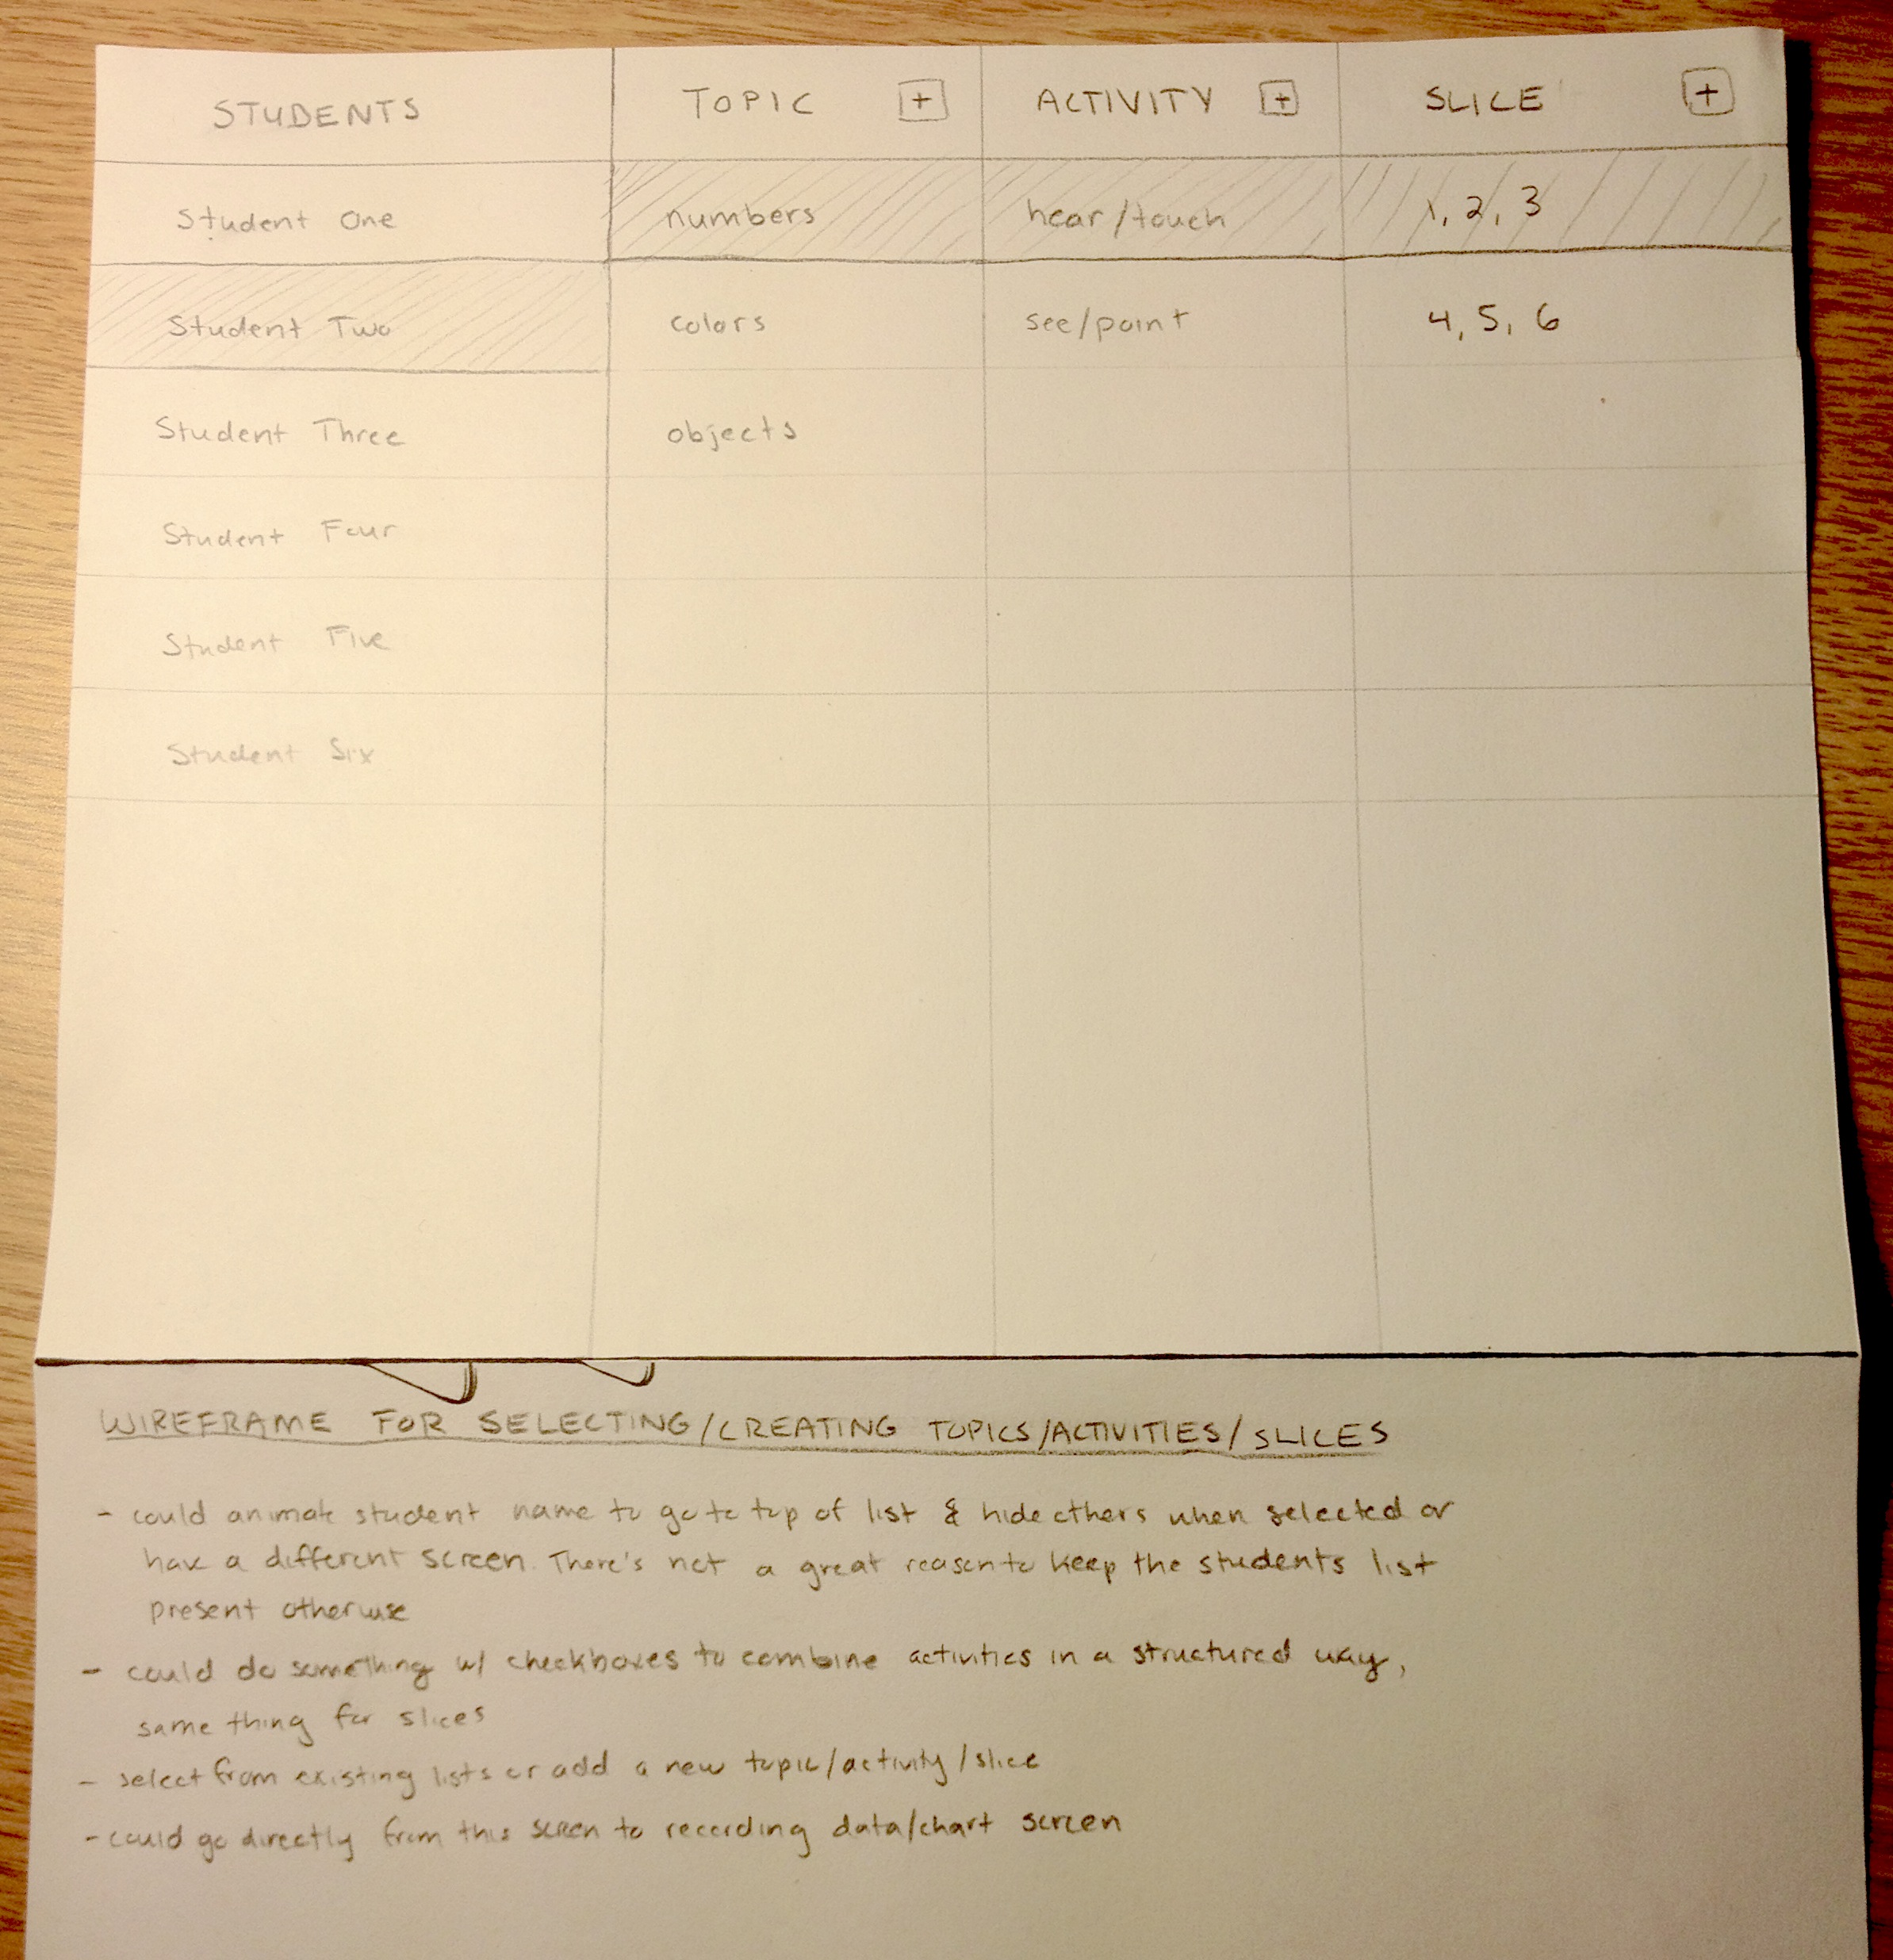 STUDENTS TOPIC + ACTIVITY + SLICE +
Student One numbers hear/touch 1, 2, 3
Student Two colors see/point 4, 5, 6
Student Three objects
Student Four
Student Five
Student Six
WIREFRAME FOR SELECTING/CREATING TOPICS/ACTIVITIES/SLICES
- could animate student name to go to top of list & hide others when selected or
have a different screen. There's not a great reason to keep the students list
present otherwise
- could do something w/ checkboxes to combine activities in a structured way,
same thing for slices
- select from existing lists or add a new topic/activity/slice
- could go directly from this screen to recording data/chart screen